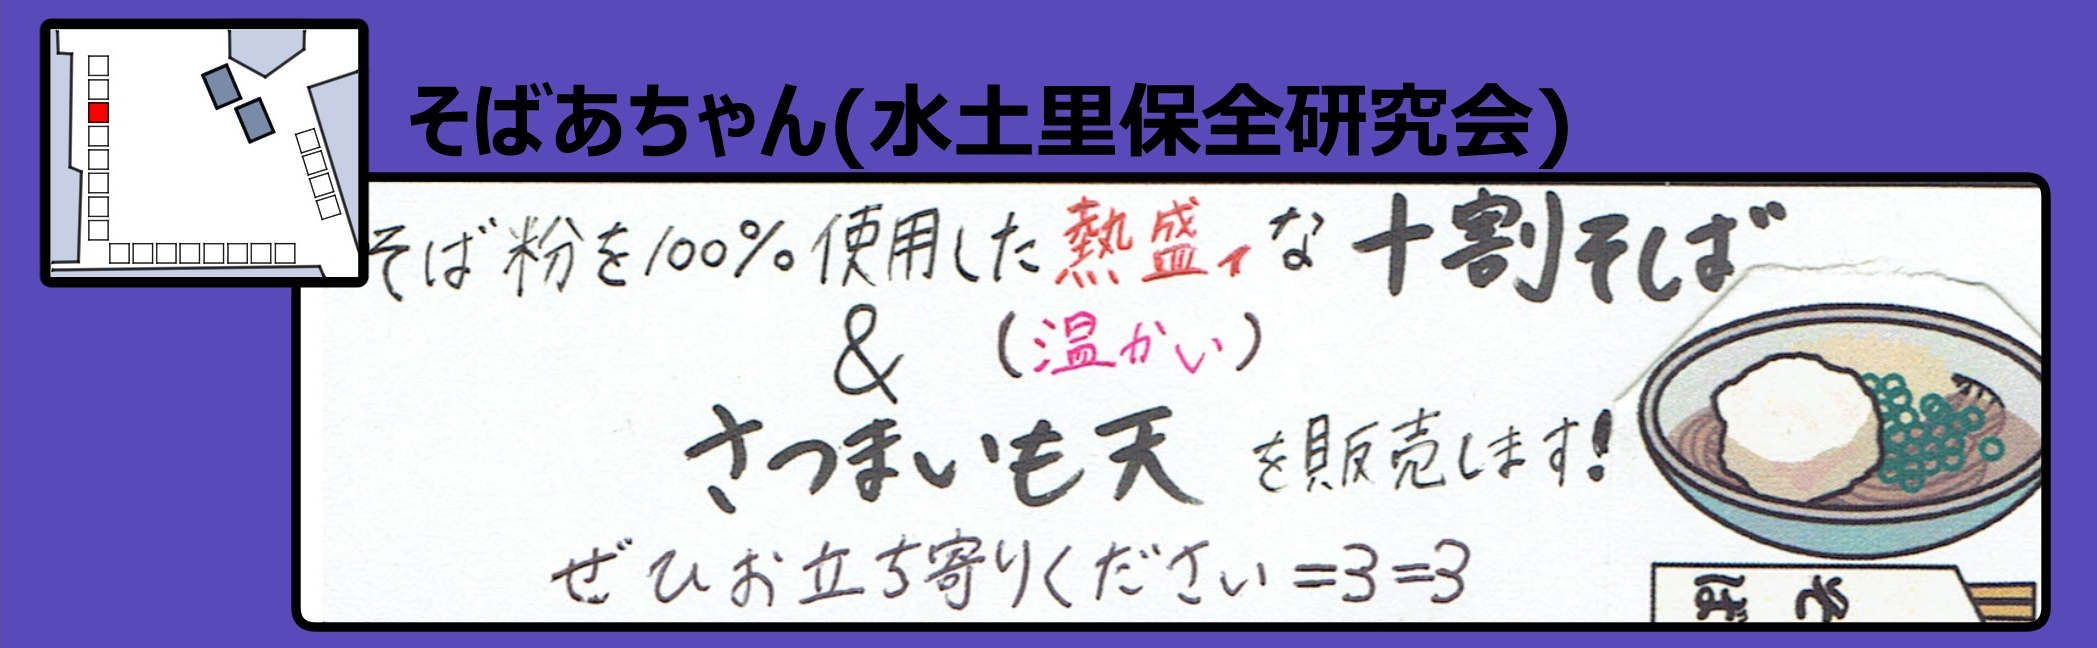 そばあちゃん(水土里保全研究会)
そば粉を100%使用した熱盛ィな十割そば
& (温かい)
さつまいも天 を販売します!
ぜひお立ち寄りください=3=3
そば